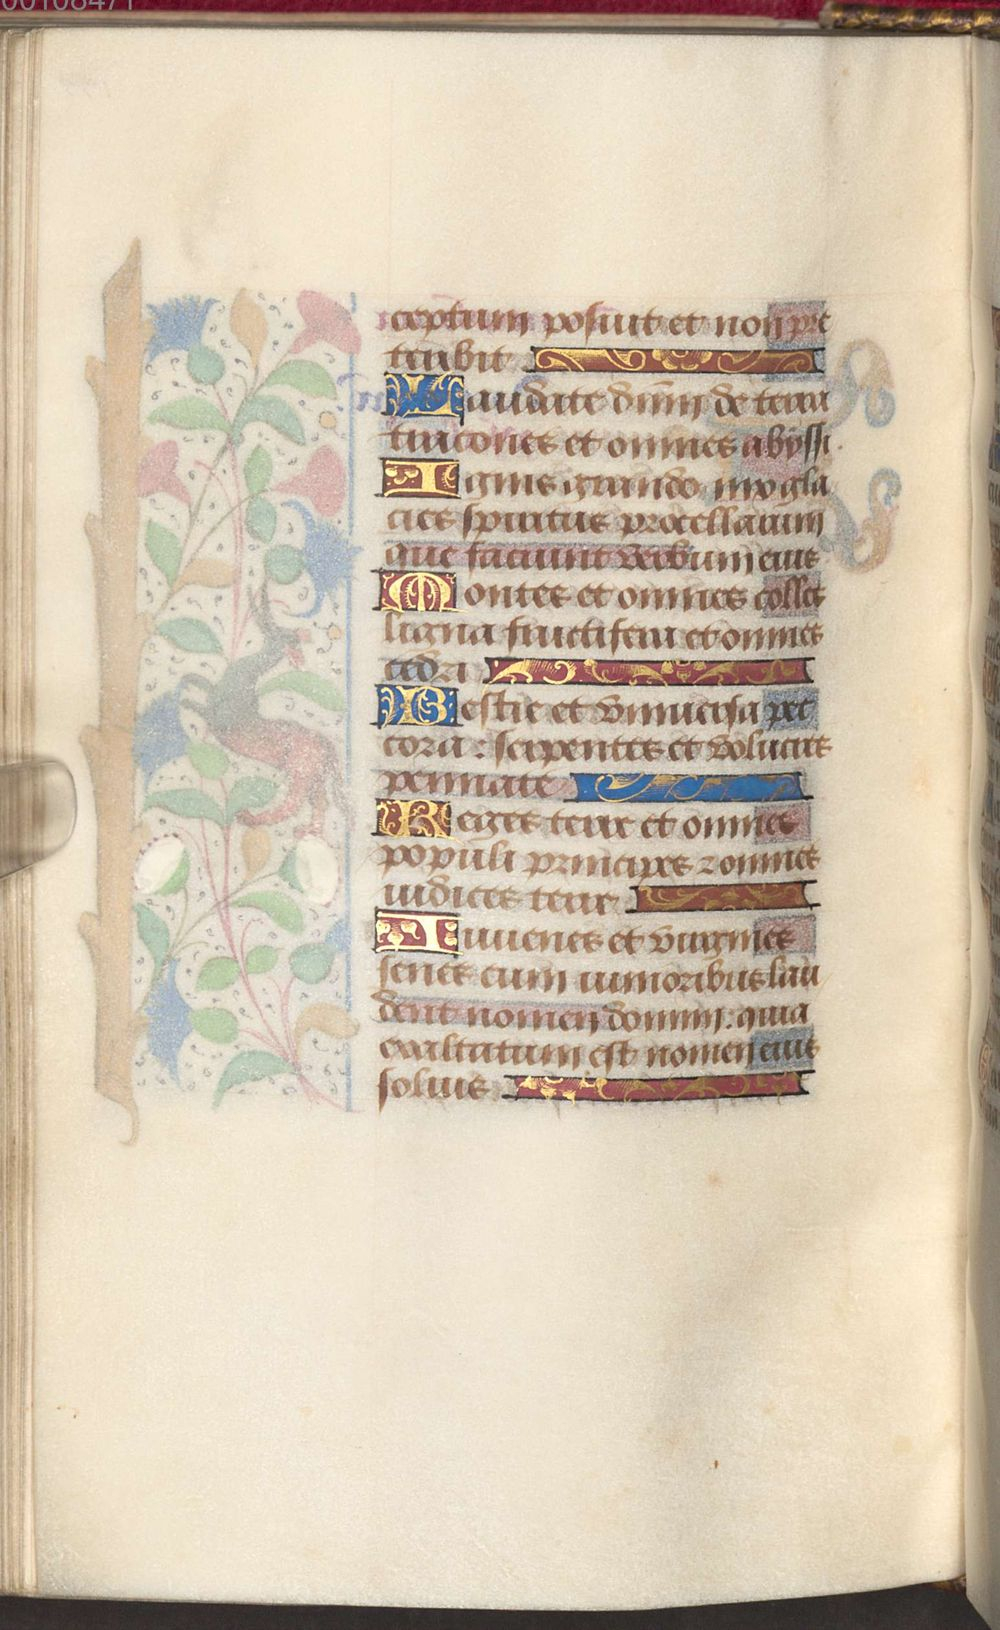 00108471
ceptum posuit et non pre
teribit
Laudate dnm de terra
dracones et omnes abyssi.
Ignis grando nix gla
cies spiritus procellarum
que faciunt verbum eius
Montes et omnes colles
ligna fructifera et omnes
cedri
Bestie et universa pec
cora: serpentes et volucres
pennate
Reges terre et omnes
populi principes ⁊ omnes
iudices terre
Iuvenes et virgines
senes cum iunioribus lau
dent nomen domini: quia
exaltatum est nomen eius
solius